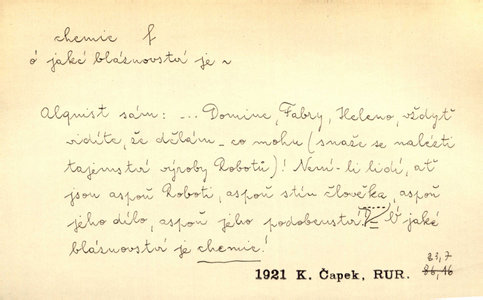 chemie f
ó jaké bláznovství je ~
Alquist sám: ... Domine, Fabry, Heleno, vždyť
vidíte, že dělám co mohu (snaže se nalézti
tajemství výroby Robotů)! Není-li lidí, ať
jsou aspoň Roboti, aspoň stín člověka, aspoň
jeho dílo, aspoň jeho podobenství! Ó jaké
bláznovství je chemie!
83,7
1921 K. Čapek, RUR. 86,46